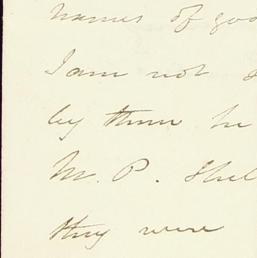 names of goo
I am not
by them he
M. P. Shel
they were